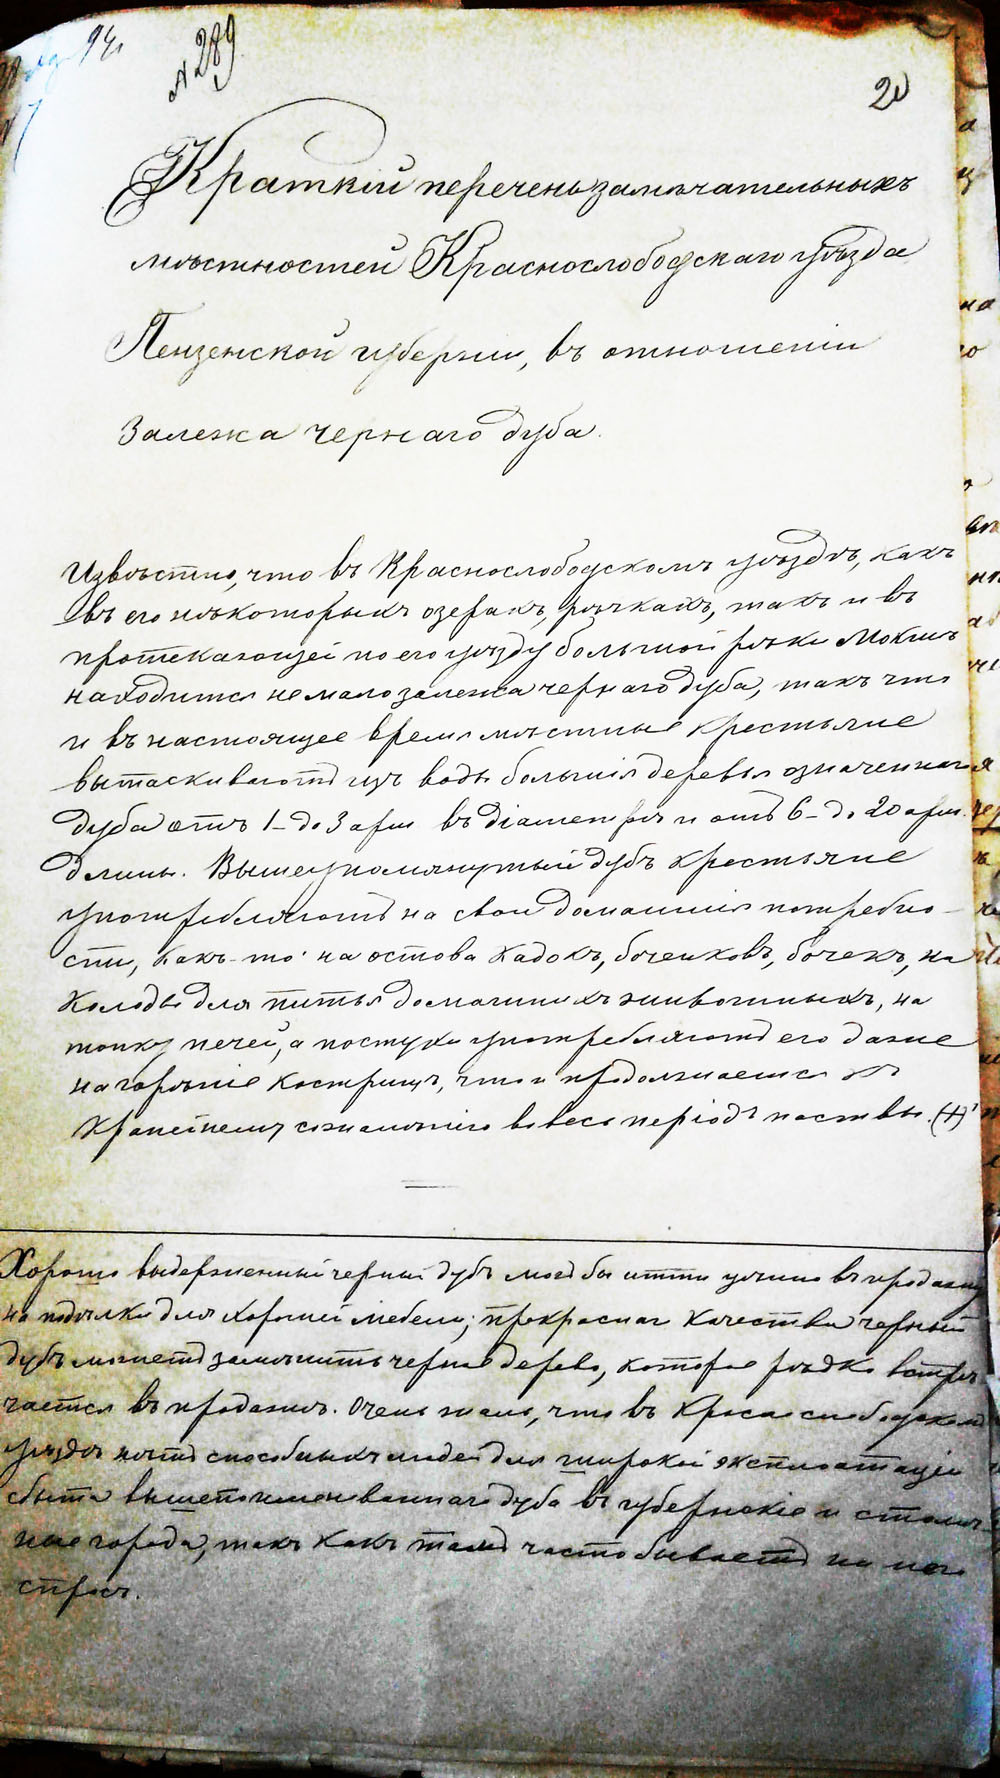 94
№ 289
20
Краткій перечень замѣчательныхъ
мѣстностей Краснослободскаго уѣзда
Пензенской губерніи, въ отношеніи
залежа чернаго дуба.
Извѣстно, что въ Краснослободскомъ уѣздѣ, какъ
въ его нѣкоторыхъ озерахъ, рѣчкахъ, такъ и въ
протекающей по его уѣзду большой рѣки Мокшѣ
находится не мало залежа чернаго дуба, такъ что
и въ настоящее время мѣстные крестьяне
вытаскиваютъ изъ воды большія деревья означеннаго
дуба отъ 1-до 3 арш въ діаметрѣ и отъ 6-до 20 арш.
длины. Вышеупомянутый дубъ крестьяне
употребляютъ на свои домашнія потребно-
сти, какъ-то: на остова кадокъ, боченковъ, бочекъ, на
колоды для питья домашнихъ животныхъ, на
топку печей, а пастухи употребляютъ его даже
на горѣніе кострищъ, что и продолжается къ
крайнему сожалѣнію во весь періодъ паствы. (+)
Хорошо выдержанный черный дубъ могъ бы итти успѣшно въ продажу
на подѣлки для хорошей мебели; прекраснаго качества черный
дубъ можетъ замѣнить черное дерево, которое рѣдко встрѣ
чается въ продажѣ. Очень жаль, что въ Краснослободскомъ
уѣздѣ нѣтъ способныхъ людей для широкой эксплоатаціи
сбыта вышепоименованнаго дуба въ губернскіе и столич
ные города, такъ какъ тамъ часто бываетъ на него
спросъ.